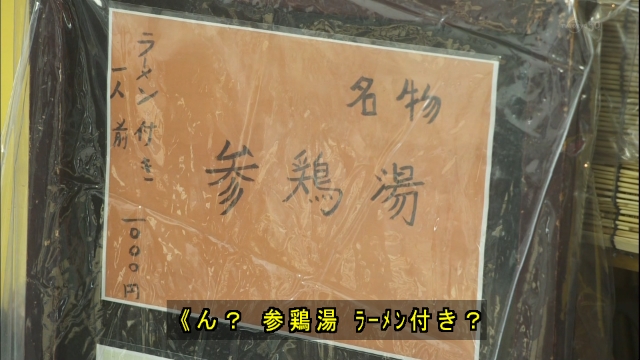 名物
参鶏湯
ラーメン付き
一人前 一000円
《ん？ 参鶏湯 ﾗｰﾒﾝ付き？